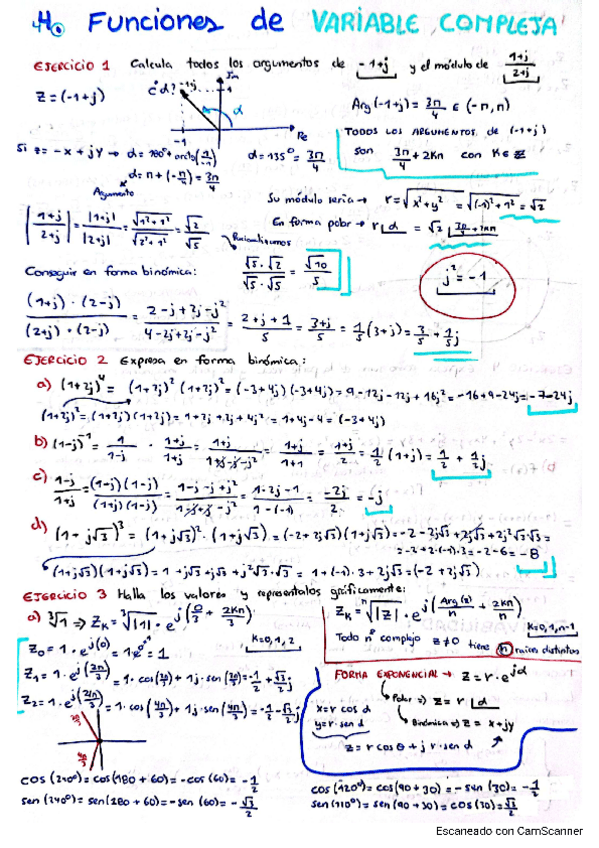 4. Funciones de VARIABLE COMPLEJA
EJERCICIO 1 Calcula todos los argumentos de -1+j y el módulo de (1+j)/(2+j)
z = (-1+j)
¿α? -1+j Im
α
-1 Re
Arg(-1+j) = 3π/4 ∈ (-π, π)
TODOS LOS ARGUMENTOS de (-1+j)
son 3π/4 + 2kπ con k ∈ Z
Si z = -x + jy → α = 180° + arctg(1/-1) α = 135° = 3π/4
α = π + (-π/4) = 3π/4
Argumento
Su módulo sería → r = √(x²+y²) = √((-1)²+1²) = √2
En forma polar → r∠α = √2
|(1+j)/(2+j)| = |1+j|/|2+j| = √(1²+1²)/√(2²+1²) = √2/√5
Racionalizamos
√5·√2/√5·√5 = √10/5
j² = -1
Conseguir en forma binómica:
(1+j)·(2-j)/(2+j)·(2-j) = (2-j+2j-j²)/(4-2j+2j-j²) = (2+j+1)/5 = (3+j)/5 = 1/5(3+j) = 3/5 + 1/5 j
EJERCICIO 2 Expresa en forma binómica:
a) (1+2j)⁴ = (1+2j)²(1+2j)² = (-3+4j)(-3+4j) = 9-12j-12j+16j² = -16+9-24j = -7-24j
(1+2j)² = (1+2j)(1+2j) = 1+2j+2j+4j² = 1+4j-4 = (-3+4j)
b) (1-j)⁻¹ = 1/(1-j) · (1+j)/(1+j) = (1+j)/(1+j-j-j²) = (1+j)/(1+1) = (1+j)/2 = 1/2(1+j) = 1/2 + 1/2 j
c) (1-j)/(1+j) = (1-j)(1-j)/(1+j)(1-j) = (1-j-j+j²)/(1-j+j-j²) = (1-2j-1)/(1-(-1)) = -2j/2 = -j
d) (1+j√3)³ = (1+j√3)²·(1+j√3) = (-2+2j√3)(1+j√3) = -2-2j√3+2j√3+2j²√3·√3 =
= -2+2·(-1)·3 = -2-6 = -8
(1+j√3)(1+j√3) = 1+j√3+j√3+j²√3·√3 = 1+(-1)·3+2j√3 = (-2+2j√3)
EJERCICIO 3 Halla los valores y represéntalos gráficamente:
a) ∛1 ⇒ Zk = ∛|1| · e^j(0/3 + 2kπ/3)
k=0,1,2
Zk = ⁿ√|z| · e^j(Arg(z)/n + 2kπ/n)
k=0,1,n-1
Todo nº complejo z≠0 tiene n raíces distintas
Z0 = 1·e^j(0) = 1·e⁰ = 1
Z1 = 1·e^j(2π/3) = 1·cos(2π/3) + 1j·sen(2π/3) = -1/2 + √3/2 j
Z2 = 1·e^j(4π/3) = 1·cos(4π/3) + 1j·sen(4π/3) = -1/2 - √3/2 j
FORMA EXPONENCIAL → z = r·e^jα
Polar ⇒ z = r∠α
Binómica ⇒ z = x+jy
x = r cos α
y = r·sen α
z = r cos θ + j r·sen α
cos(240°) = cos(180+60) = -cos(60) = -1/2
sen(240°) = sen(180+60) = -sen(60) = -√3/2
cos(120°) = cos(90+30) = -sen(30) = -1/2
sen(120°) = sen(90+30) = cos(30) = √3/2
Escaneado con CamScanner